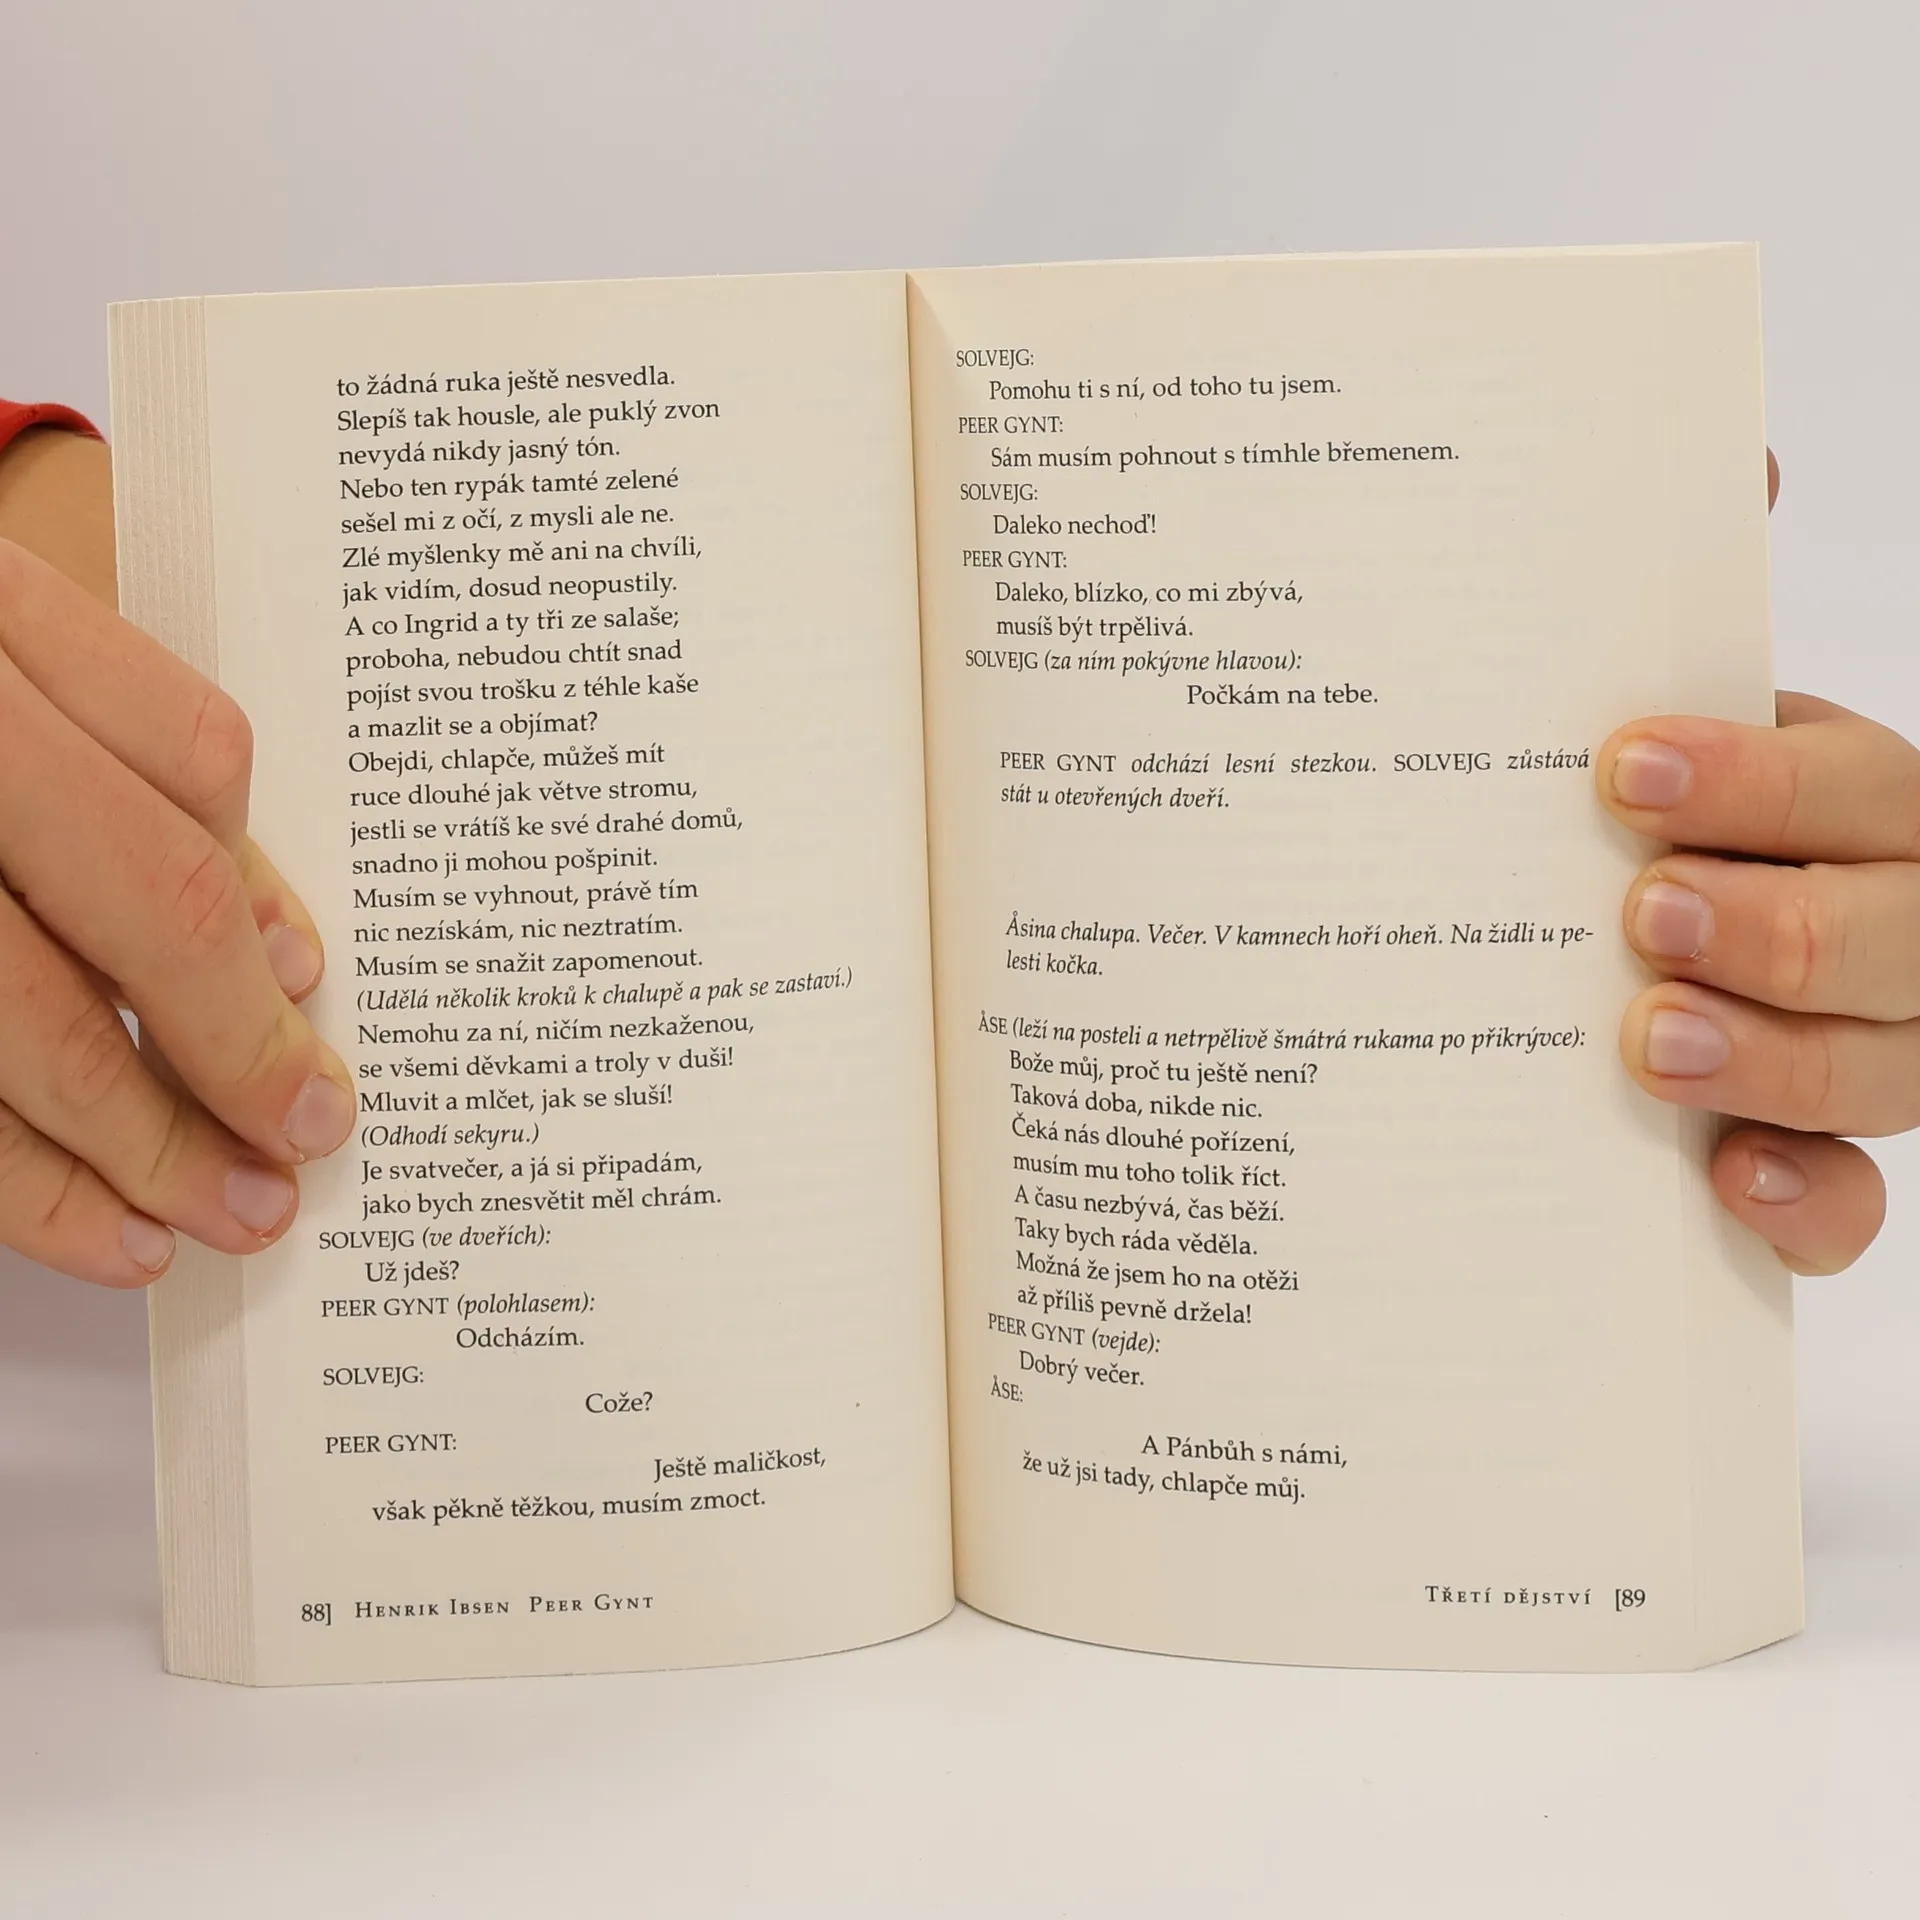 to žádná ruka ještě nesvedla.
Slepíš tak housle, ale puklý zvon
nevydá nikdy jasný tón.
Nebo ten rypák tamté zelené
sešel mi z očí, z mysli ale ne.
Zlé myšlenky mě ani na chvíli,
jak vidím, dosud neopustily.
A co Ingrid a ty tři ze salaše;
proboha, nebudou chtít snad
pojíst svou trošku z téhle kaše
a mazlit se a objímat?
Obejdi, chlapče, můžeš mít
ruce dlouhé jak větve stromu,
jestli se vrátíš ke své drahé domů,
snadno ji mohou pošpinit.
Musím se vyhnout, právě tím
nic nezískám, nic neztratím.
Musím se snažit zapomenout.
(Udělá několik kroků k chalupě a pak se zastaví.)
Nemohu za ní, ničím nezkaženou,
se všemi děvkami a troly v duši!
Mluvit a mlčet, jak se sluší!
(Odhodí sekyru.)
Je svatvečer, a já si připadám,
jako bych znesvětit měl chrám.
SOLVEJG (ve dveřích):
Už jdeš?
PEER GYNT (polohlasem):
Odcházím.
SOLVEJG:
Cože?
PEER GYNT:
Ještě maličkost,
však pěkně těžkou, musím zmoct.
88] HENRIK IBSEN PEER GYNT
SOLVEJG:
Pomohu ti s ní, od toho tu jsem.
PEER GYNT:
Sám musím pohnout s tímhle břemenem.
SOLVEJG:
Daleko nechoď!
PEER GYNT:
Daleko, blízko, co mi zbývá,
musíš být trpělivá.
SOLVEJG (za ním pokývne hlavou):
Počkám na tebe.
PEER GYNT odchází lesní stezkou. SOLVEJG zůstává
stát u otevřených dveří.
Åsina chalupa. Večer. V kamnech hoří oheň. Na židli u pe-
lesti kočka.
ÅSE (leží na posteli a netrpělivě šmátrá rukama po přikrývce):
Bože můj, proč tu ještě není?
Taková doba, nikde nic.
Čeká nás dlouhé pořízení,
musím mu toho tolik říct.
A času nezbývá, čas běží.
Taky bych ráda věděla.
Možná že jsem ho na otěži
až příliš pevně držela!
PEER GYNT (vejde):
Dobrý večer.
ÅSE:
A Pánbůh s námi,
že už jsi tady, chlapče můj.
TŘETÍ DĚJSTVÍ [89